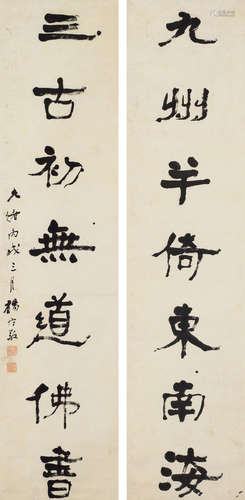 九州半倚東南海
三古初無道佛書
光緒丙戌三月楊守敬